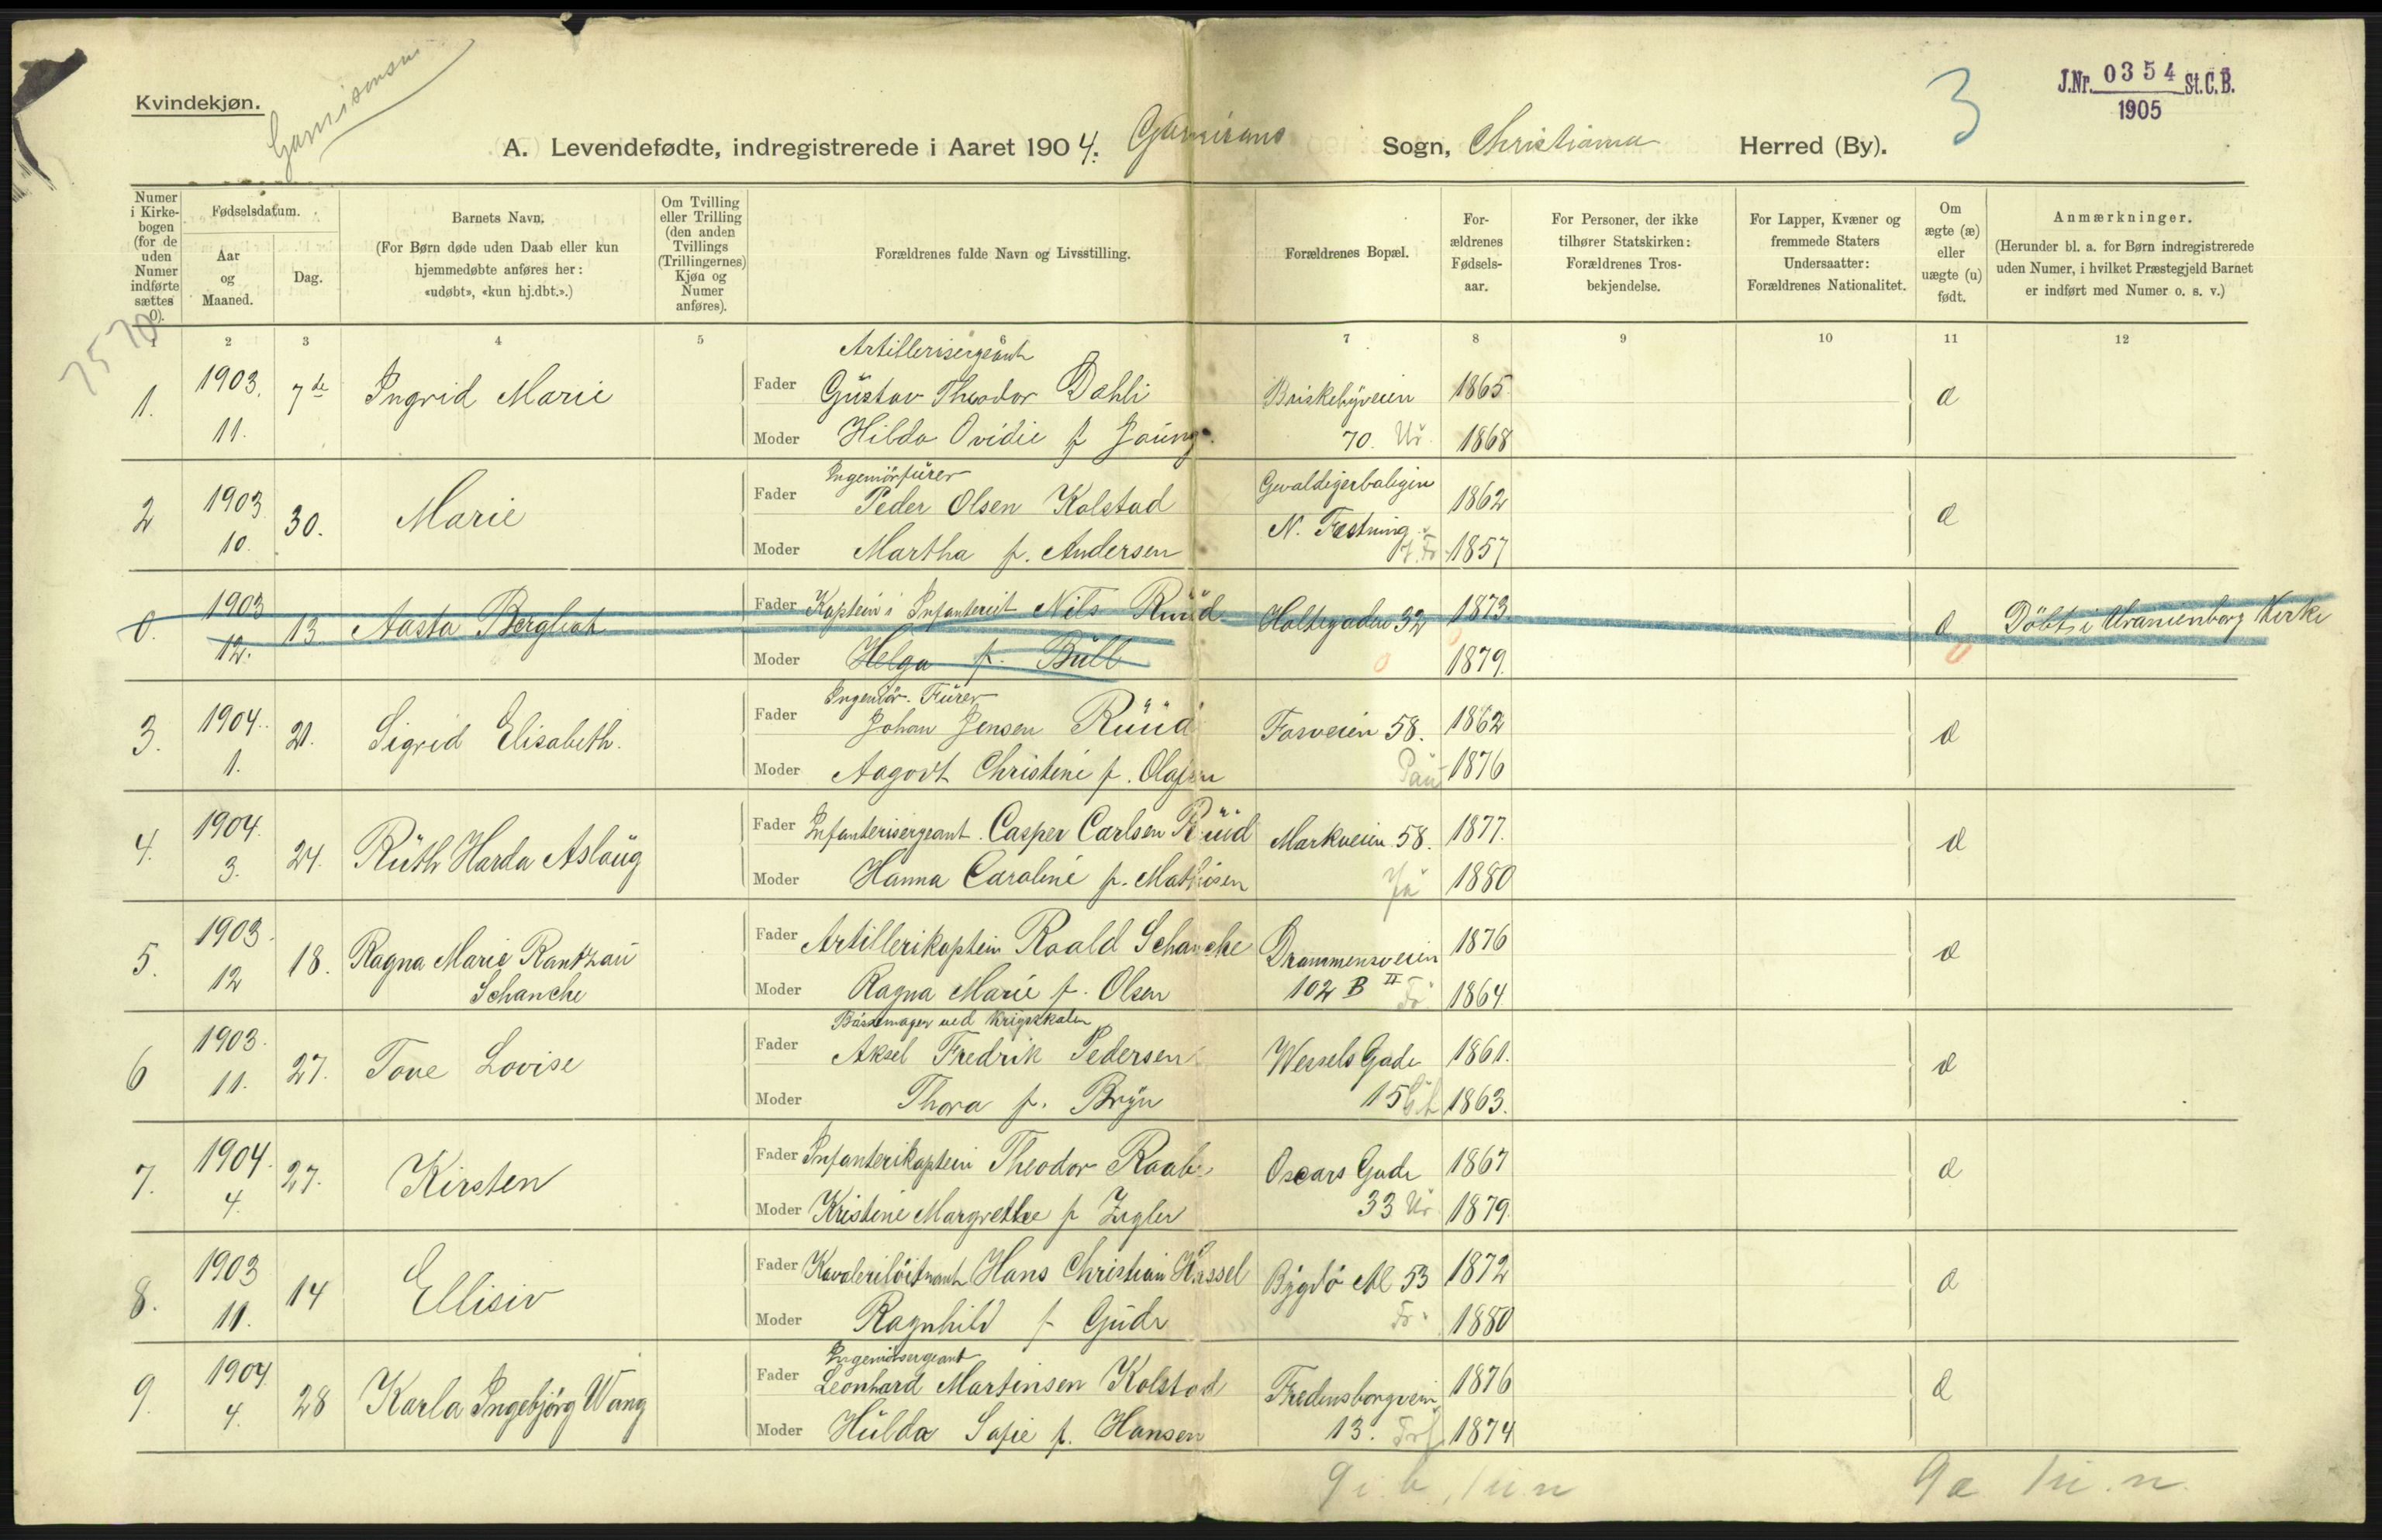 Kvindekjøn.
Garnisons
3
J.Nr. 0354 St.C.B.
1905
A. Levendefødte, indregistrerede i Aaret 1904. Garnisons Sogn, Christiania Herred (By).
Numer i Kirkebogen (for de uden Numer indførte sættes 0).
Fødselsdatum.
Aar og Maaned.
Dag.
Barnets Navn.
(For Børn døde uden Daab eller kun hjemmedøbte anføres her: «udøbt», «kun hj.dbt.».)
Om Tvilling eller Trilling (den anden Tvillings (Trillingernes) Kjøn og Numer anføres).
Forældrenes fulde Navn og Livsstilling.
Forældrenes Bopæl.
Forældrenes Fødselsaar.
For Personer, der ikke tilhører Statskirken: Forældrenes Trosbekjendelse.
For Lapper, Kvæner og fremmede Staters Undersaatter: Forældrenes Nationalitet.
Om ægte (æ) eller uægte (u) født.
Anmærkninger.
(Herunder bl. a. for Børn indregistrerede uden Numer, i hvilket Præstegjeld Barnet er indført med Numer o. s. v.)
7570
1 2 3 4 5 7 8 9 10 11 12
1. 1903. 11. 7de Ingrid Marie
Artillerisergeant
Fader Gustav Theodor Dahli Briskebyveien 1865 æ
Moder Hilda Ovidie f Jaung 70. Ur. 1868
2 1903 10. 30. Marie
Ingeniørfurer
Fader Peder Olsen Kolstad Gevaldigerboligen 1862 æ
N. Fæstning
Moder Martha f. Andersen 1857
0. 1903 12. 13. Aasta Bergliot
Fader Kaptein i Infanteriet Nils Ruud Holtegaden 32 1873. æ Döbt i Uranienborg Kirke
Moder Helga f. Bull 0 1879.
3. 1904. 1. 21. Sigrid Elisabeth.
Ingeniör. Furer
Fader Johan Jensen Ruud Fosveien 58. 1862 æ
Moder Aagodt Christine f. Olafsen Pau 1876
4. 1904. 3. 24. Ruth Harda Aslaug
Fader Infanterisergeant. Casper Carlsen Ruud Markveien 58. 1877. æ
Moder Hanna Caroline f. Mathisen Ja 1880
5. 1903. 12 18. Ragna Marie Rantzau
Schanche
Fader Artillerikaptein Roald Schanche Drammensveien 1876 æ
Moder Ragna Marie f. Olsen 102 B II Fr 1864
6 1903. 11. 27. Tove Lovise
Bössemager ved Krigsskolen
Fader Aksel Fredrik Pedersen Wessels Gade 1861. æ
Moder Thora f. Bryn 15 1863.
7. 1904. 4. 27. Kirsten
Fader Infanterikaptein Theodor Raabe Oscars Gade 1867 æ
Moder Kristine Margrethe f Zigler 33 Ur 1879.
8. 1903 11. 14 Ellisiv
Fader Kavaleriløitnant Hans Christian Hassel Bygdö Al 53 1872 æ
Moder Ragnhild f Gude Fr. 1880
9. 1904 4. 28 Karla Ingebjörg Wang
Ingeniörsergeant
Fader Leonhard Martinsen Kolstad Fredensborgvein 1876 æ
Moder Hulda Sofie f. Hansen 13. 1874
9 i. b. 1 u. n 9 æ 1 u. n.